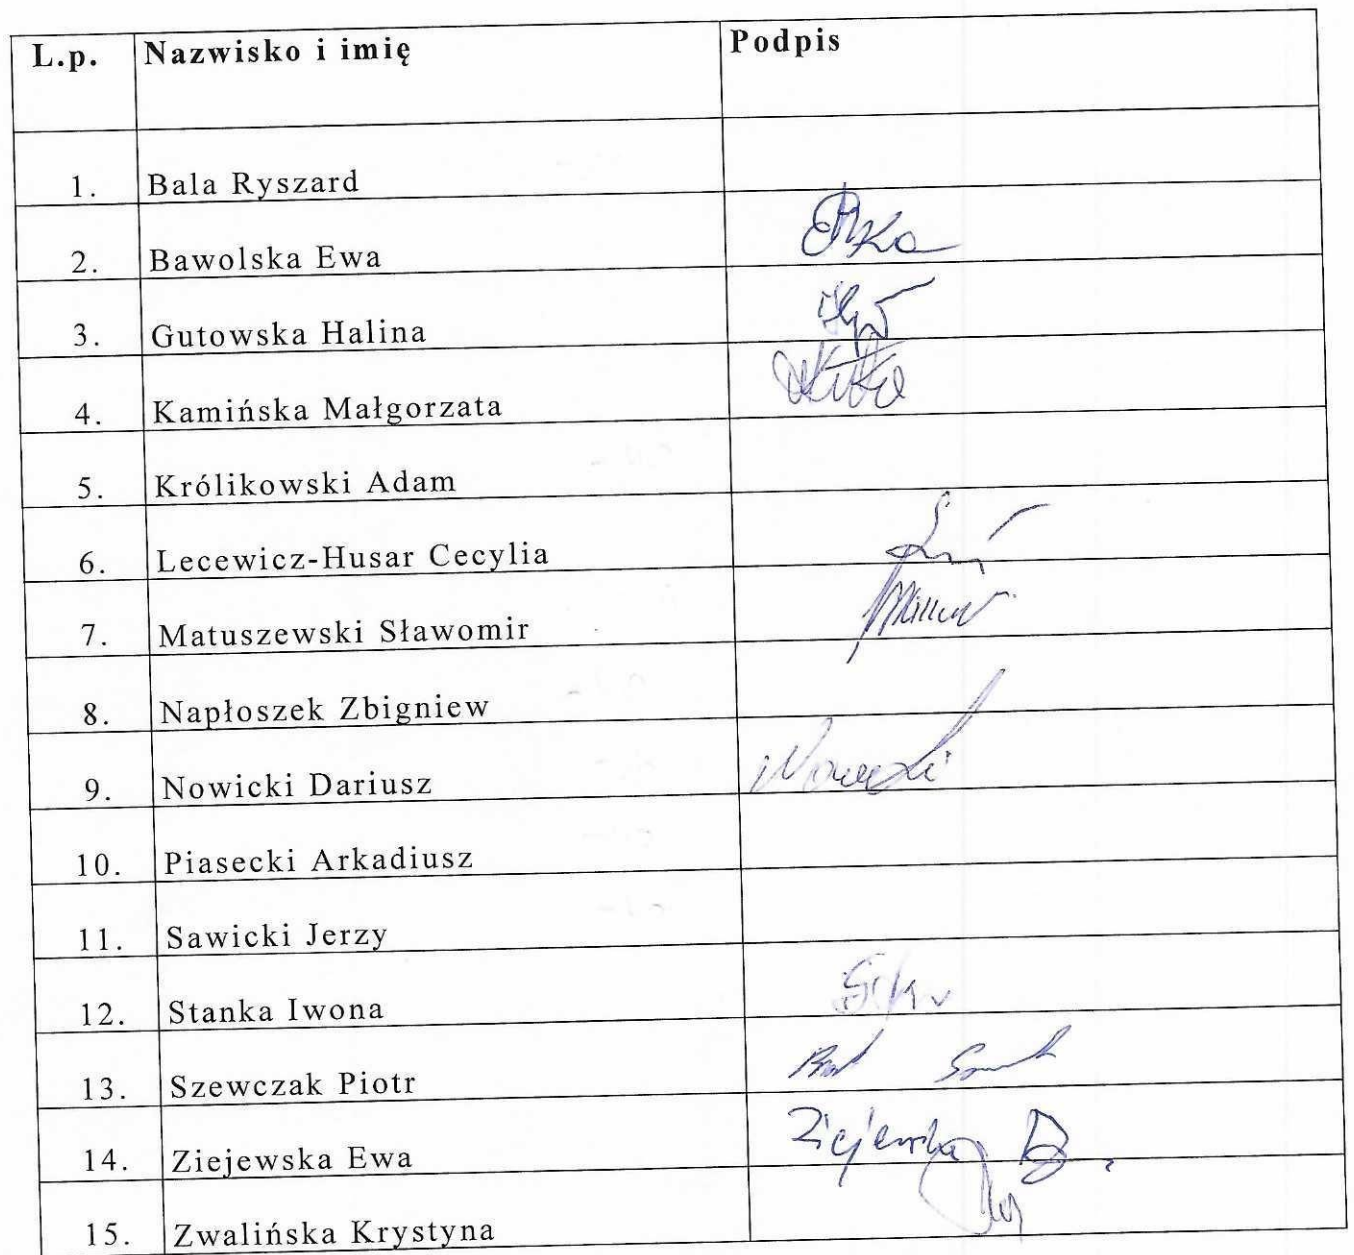 L.p. Nazwisko i imię Podpis
1. Bala Ryszard
2. Bawolska Ewa
3. Gutowska Halina
4. Kamińska Małgorzata
5. Królikowski Adam
6. Lecewicz-Husar Cecylia
7. Matuszewski Sławomir
8. Napłoszek Zbigniew
9. Nowicki Dariusz Nowicki
10. Piasecki Arkadiusz
11. Sawicki Jerzy
12. Stanka Iwona
13. Szewczak Piotr
14. Ziejewska Ewa Ziejewska
15. Zwalińska Krystyna